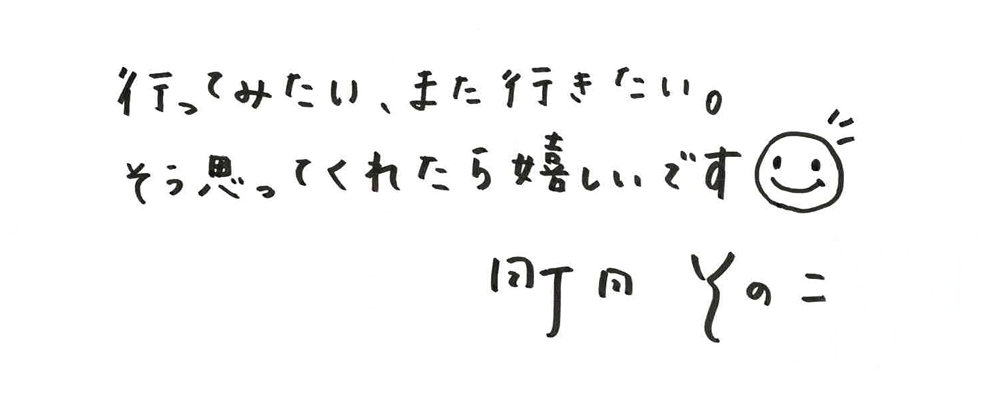 行ってみたい、また行きたい。
そう思ってくれたら嬉しいです
町田 そのこ